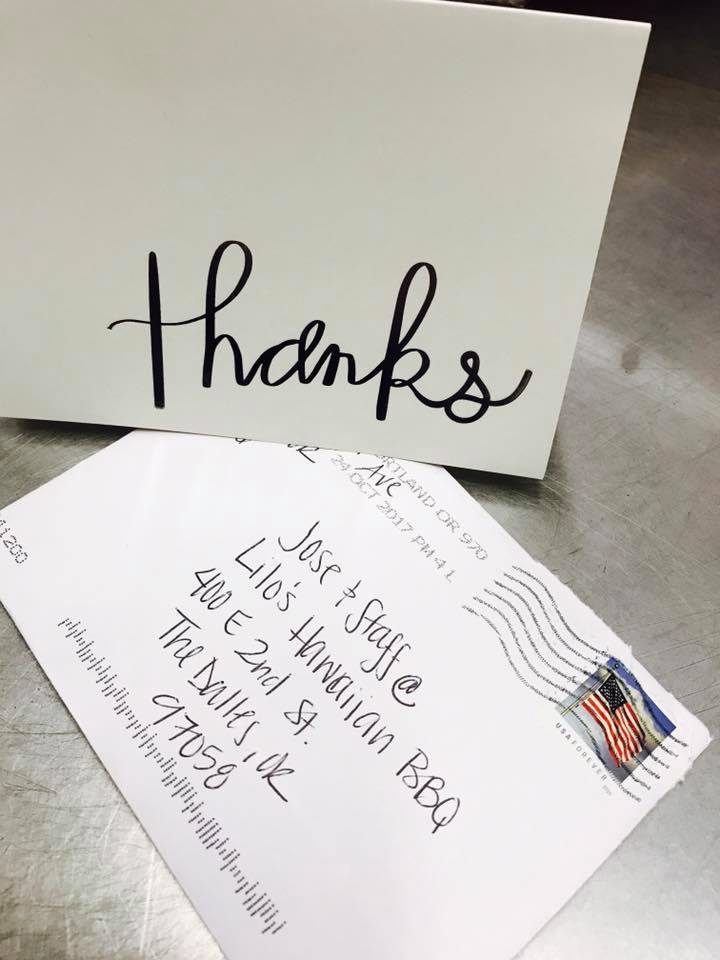 thanks
Ave
PORTLAND OR 970
24 OCT 2017 PM 4 L
Jose & Staff @
Lilo's Hawaiian BBQ
400 E 2nd St.
The Dalles, OR
97058
USA FOREVER